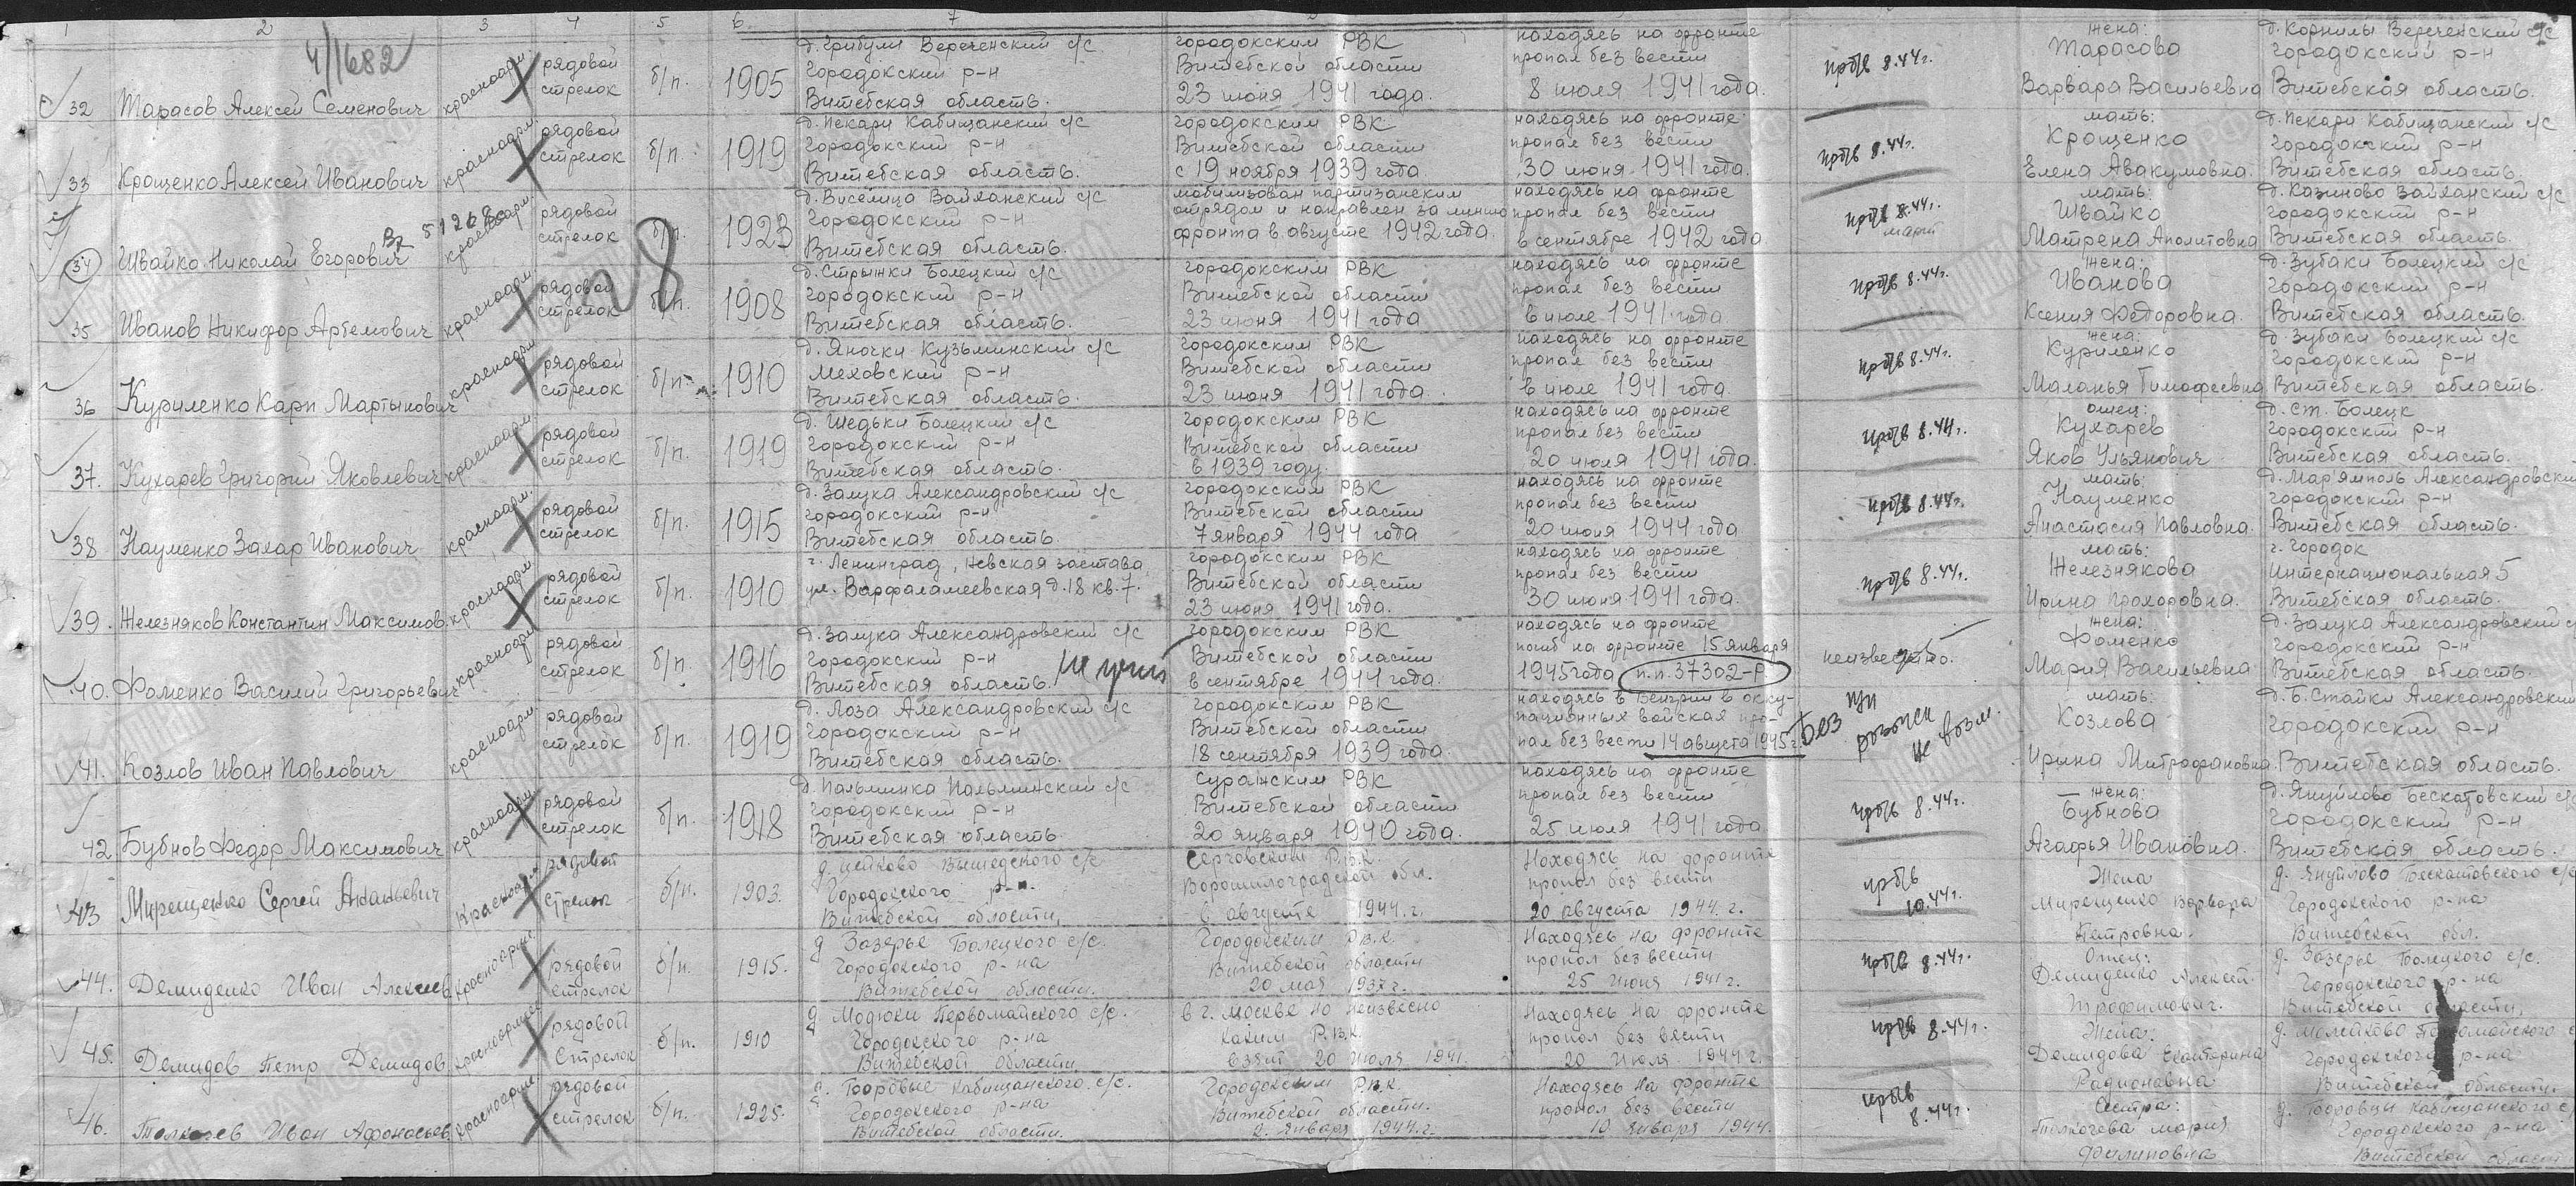 1 2 3 4 5 6. 7
4/1682
32 Тарасов Алексей Семенович красноарм. рядовой стрелок б/п. 1905
д. Грибули Вереченский с/с
Городокский р-н
Витебская область.
городокским РВК
Витебской области
23 июня 1941 года.
находясь на фронте
пропал без вести
8 июля 1941 года.
8.44г.
жена:
Тарасова
Варвара Васильевна
д. Корнилы Вереченский с/с
городокский р-н
Витебская область.
33 Крощенко Алексей Иванович красноарм. рядовой стрелок б/п. 1919
д. Пекари Кабищанский с/с
городокский р-н
Витебская область.
городокским РВК
Витебской области
с 19 ноября 1939 года
находясь на фронте
пропал без вести
30 июня 1941 года.
8.44г.
мать:
Крощенко
Елена Авакумовна.
д. Пекари Кабищанский с/с
городокский р-н
Витебская область.
34 Швайко Николай Егорович красноарм. рядовой стрелок б/п. 1923
д. Виселица Вайханский с/с
городокский р-н
Витебская область.
мобилизован партизанским
отрядом и направлен за линию
фронта в августе 1942 года.
находясь на фронте
пропал без вести
в сентябре 1942 года
8.44г.
мать:
Швайко
Матрена Аполитовна
д. Казиново Вайханский с/с
городокский р-н
Витебская область.
28
35 Иванов Никифор Артемович красноарм. рядовой стрелок б/п. 1908
д. Стрыжки Болецкий с/с
городокский р-н
Витебская область.
городокским РВК
Витебской области
23 июня 1941 года
находясь на фронте
пропал без вести
в июле 1941 года
8.44г.
жена:
Иванова
Ксения Федоровна.
д. Зубаки Болецкий с/с
городокский р-н
Витебская область.
36 Куриленко Карп Мартынович красноарм. рядовой стрелок б/п 1910
д. Яночки Кузьминский с/с
Меховский р-н
Витебская область.
городокским РВК
Витебской области
23 июня 1941 года.
находясь на фронте
пропал без вести
в июле 1941 года.
8.44г.
жена:
Куриленко
Маланья Тимофеевна
д. Зубаки Болецкий с/с
городокский р-н
Витебская область.
37. Кухарев Григорий Яковлевич красноарм. рядовой стрелок б/п. 1919
д. Шедьки Болецкий с/с
городокский р-н
Витебская область.
городокским РВК
Витебской области
в 1939 году.
находясь на фронте
пропал без вести
20 июля 1941 года.
8.44г.
отец:
Кухарев
Яков Ульянович
д. ст. Болецк
городокский р-н
Витебская область.
38 Науменко Захар Иванович красноарм. рядовой стрелок б/п. 1915
д. Залука Александровский с/с
городокский р-н
Витебская область.
городокским РВК
Витебской области
7 января 1944 года
находясь на фронте
пропал без вести
20 июня 1944 года
8.44г.
мать:
Науменко
Анастасия Павловна.
д. Марʼямполь Александровский
городокский р-н
Витебская область.
39. Железняков Константин Максимов. красноарм. рядовой стрелок б/п. 1910
г. Ленинград, Невская застава,
ул. Варфаламеевская д. 18 кв. 7.
городокским РВК
Витебской области
23 июня 1941 года.
находясь на фронте
пропал без вести
30 июня 1941 года.
8.44г.
мать:
Железнякова
Ирина Прохоровна.
г. Городок
Интернациональная 5
Витебская область.
40. Фоменко Василий Григорьевич красноарм. рядовой стрелок б/п. 1916
д. Залука Александровский с/с
городокский р-н
Витебская область.
городокским РВК
Витебской области
в сентябре 1944 года.
находясь на фронте
погиб на фронте 15 января
1945 года п.п. 37302-Р
неизвестно.
жена:
Фоменко
Мария Васильевна
д. Залука Александровский с/
городокский р-н
Витебская область.
41. Козлов Иван Павлович красноарм. рядовой стрелок б/п. 1919
д. Лоза Александровский с/с
городокский р-н
Витебская область.
городокским РВК
Витебской области
18 сентября 1939 года.
находясь в Венгрии в окку-
пационных войсках про-
пал без вести 14 августа 1945г.
Без п/п
розыск
не возм.
мать:
Козлова
Ирина Митрофановна.
д. Б. Стайки Александровский
городокский р-н
Витебская область.
42 Бубнов Федор Максимович красноарм. рядовой стрелок б/п. 1918
д. Пальминка Пальминский с/с
городокский р-н
Витебская область.
суражским РВК
Витебской области
20 января 1940 года.
находясь на фронте
пропал без вести
25 июля 1941 года
8.44г.
жена:
Бубнова
Агафья Ивановна.
д. Януплово Бескатовский с/с
городокский р-н
Витебская область.
43 Мирещенко Сергей Ананьевич красноарм. рядовой стрелок б/п. 1903.
Вышедского с/с
Городокского р-н.
Витебской области,
Р.В.К.
Ворошилоградской обл.
в августе 1944.г.
Находясь на фронте
пропал без вести
20 августа 1944.г.
10.44г.
Жена
Мирещенко Варвара
Петровна.
д. Януплово Бескатовского с/с
Городокского р-на
Витебской обл.
44. Демиденко Иван Алексеев. красноармеец рядовой стрелок б/п. 1915.
д Зазерье Болецкого с/с.
Городокского р-на
Витебской области.
Городокским Р.В.К.
Витебской области
20 мая 1937 г.
Находясь на фронте
пропал без вести
25 июня 1941 г.
8.44г.
Отец:
Демиденко Алексей
Трофимович.
д. Зазерье Болецкого с/с.
Городокского р-на
Витебской области,
45. Демидов Петр Демидов. красноармеец рядовой стрелок б/п. 1910
д Модюки Первомайского с/с.
Городокского р-на
Витебской области
в г. Москве но неизвесно
каким Р.В.К.
взят 20 июля 1941.
Находясь на фронте
пропал без вести
20 июля 1944 г.
8.44г.
Жена:
Демидова Екатерина
Радионавна
Городокского р-на
Витебской области.
46. Толкачев Иван Афонасьев. красноармеец рядовой стрелок б/п. 1925.
Кабищанского с/с.
Городокского р-на
Витебской области.
Городокским Р.В.К.
Витебской области.
2. января 1944.г.
Находясь на фронте
пропал без вести
10 января 1944.
8.44г.
Сестра:
Толкачева Мария
Филиповна
Кабищанского с
Городокского р-на
Витебской област